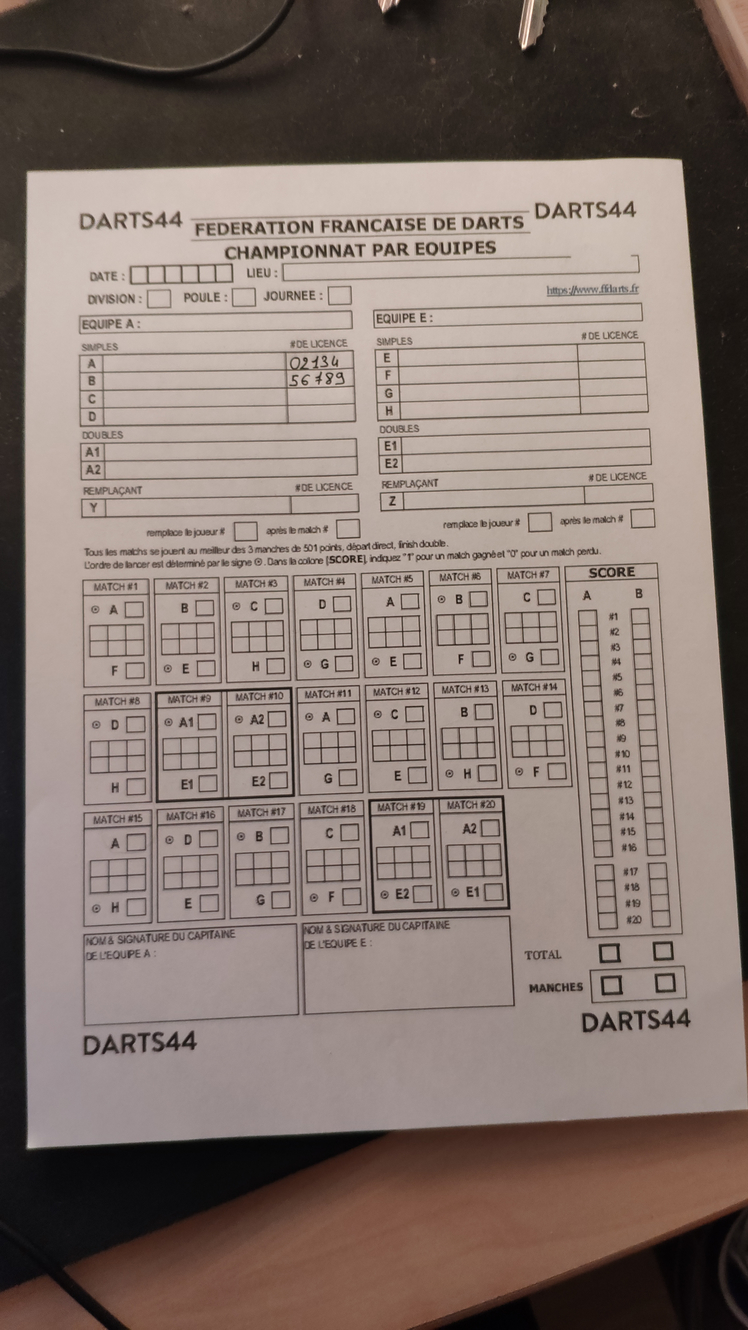 DARTS44 FEDERATION FRANCAISE DE DARTS DARTS44
CHAMPIONNAT PAR EQUIPES
DATE : LIEU :
DIVISION : POULE : JOURNEE : https://www.ffdarts.fr
EQUIPE A : EQUIPE E :
SIMPLES #DE LICENCE SIMPLES #DE LICENCE
A 02134 E
B 56789 F
C G
D H
DOUBLES DOUBLES
A1 E1
A2 E2
REMPLAÇANT #DE LICENCE REMPLAÇANT #DE LICENCE
Y Z
remplace le joueur # après le match # remplace le joueur # après le match #
Tous les matchs se jouent au meilleur des 3 manches de 501 points, départ direct, finish double.
L'ordre de lancer est déterminé par le signe ⊙. Dans la colone [SCORE], indiquez "1" pour un match gagné et "0" pour un match perdu.
MATCH #1 MATCH #2 MATCH #3 MATCH #4 MATCH #5 MATCH #6 MATCH #7 SCORE
⊙ A B ⊙ C D A ⊙ B C A B
F ⊙ E H ⊙ G ⊙ E F ⊙ G
MATCH #8 MATCH #9 MATCH #10 MATCH #11 MATCH #12 MATCH #13 MATCH #14
⊙ D ⊙ A1 ⊙ A2 ⊙ A ⊙ C B D
H E1 E2 G E ⊙ H ⊙ F
MATCH #15 MATCH #16 MATCH #17 MATCH #18 MATCH #19 MATCH #20
A ⊙ D ⊙ B C A1 A2
⊙ H E G ⊙ F ⊙ E2 ⊙ E1
#1
#2
#3
#4
#5
#6
#7
#8
#9
#10
#11
#12
#13
#14
#15
#16
#17
#18
#19
#20
NOM & SIGNATURE DU CAPITAINE
DE L'EQUIPE A :
NOM & SIGNATURE DU CAPITAINE
DE L'EQUIPE E :
TOTAL
MANCHES
DARTS44 DARTS44